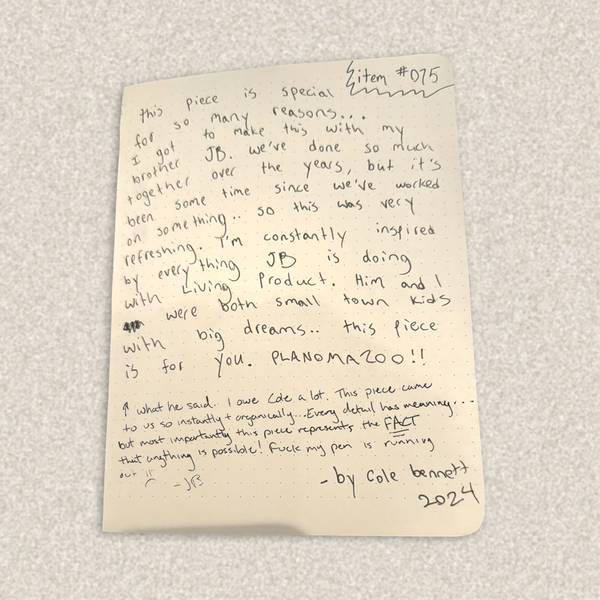 item #075
this piece is special
for so many reasons...
I got to make this with my
brother JB. we've done so much
together over the years, but it's
been some time since we've worked
on something.. so this was very
refreshing. I'm constantly inspired
by everything JB is doing
with Living Product. Him and I
were both small town kids
with big dreams.. this piece
is for you. PLANOMAZOO!!
↑ what he said. I owe Cole a lot. This piece came
to us so instantly + organically... Every detail has meaning...
but most importantly this piece represents the FACT
that anything is possible! Fuck my pen is running
out
-JB
-by Cole bennett
2024